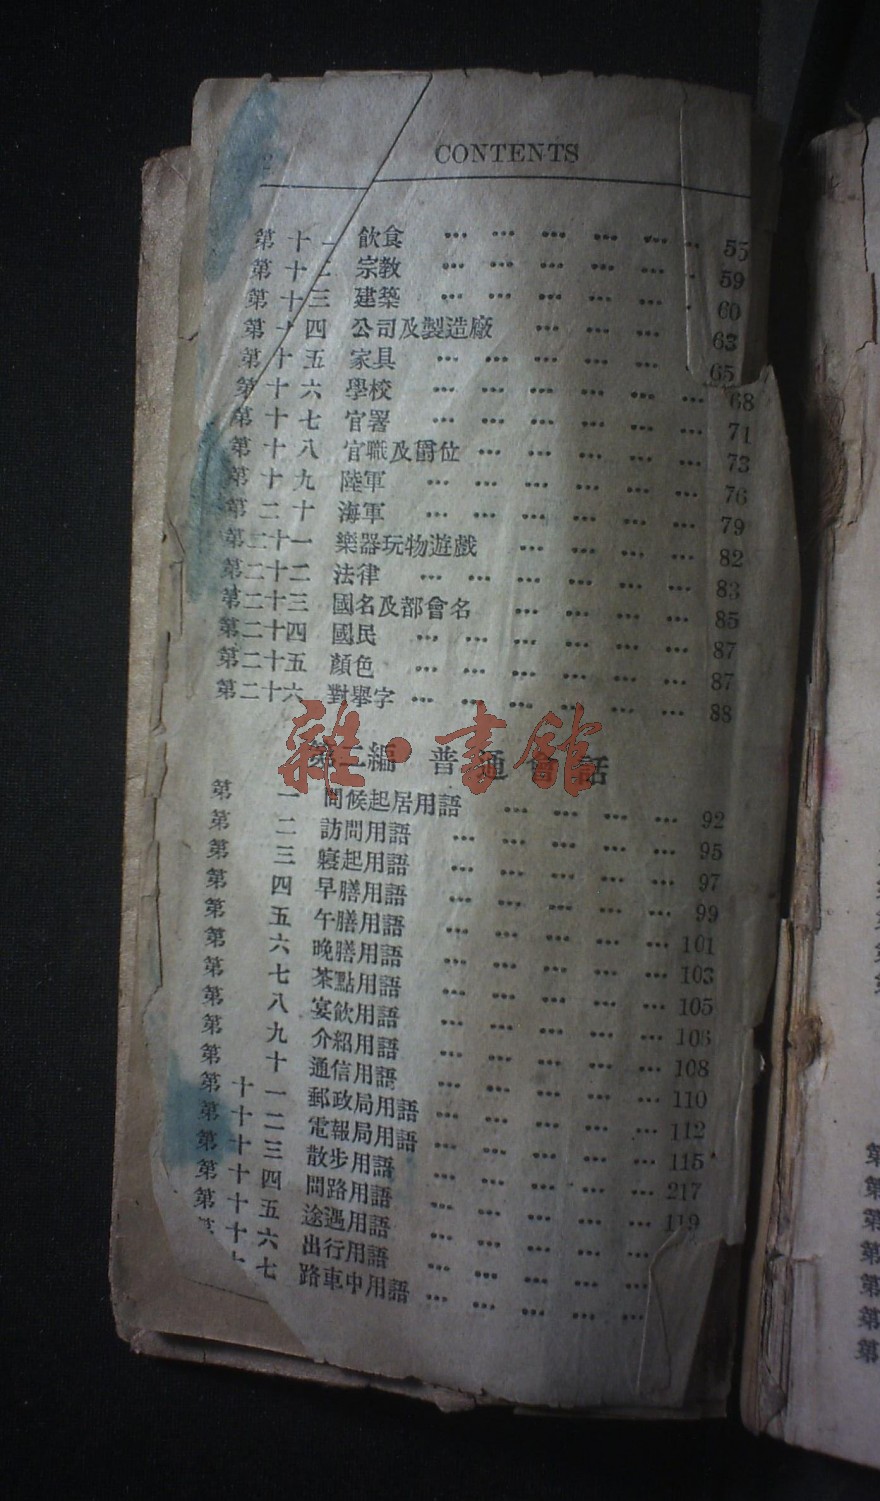 2 CONTENTS
第十一 飲食 … … … … … … 55
第十二 宗教 … … … … … … 59
第十三 建築 … … … … … … 60
第十四 公司及製造廠 … … … … 63
第十五 家具 … … … … … 65
第十六 學校 … … … … … … 68
第十七 官署 … … … … … … 71
第十八 官職及爵位 … … … … … 73
第十九 陸軍 … … … … … … 76
第二十 海軍 … … … … … … 79
第二十一 樂器玩物遊戲 … … … … 82
第二十二 法律 … … … … … … 83
第二十三 國名及都會名 … … … … 85
第二十四 國民 … … … … … … 87
第二十五 顏色 … … … … … … 87
第二十六 對舉字 … … … … … … 88
雜·書館
第二編 普通會話
第一 問候起居用語 … … … … 92
第二 訪問用語 … … … … … 95
第三 寢起用語 … … … … … 97
第四 早膳用語 … … … … … 99
第五 午膳用語 … … … … … 101
第六 晚膳用語 … … … … … 103
第七 茶點用語 … … … … … 105
第八 宴飲用語 … … … … … 106
第九 介紹用語 … … … … … 108
第十 通信用語 … … … … … 110
第十一 郵政局用語 … … … … … 112
第十二 電報局用語 … … … … … 115
第十三 散步用語 … … … … … 217
第十四 問路用語 … … … … … 119
第十五 途遇用語 … … … … …
第十六 出行用語 … … … … …
十七 路車中用語 … … … … …
第
第
第
第
第
第
第